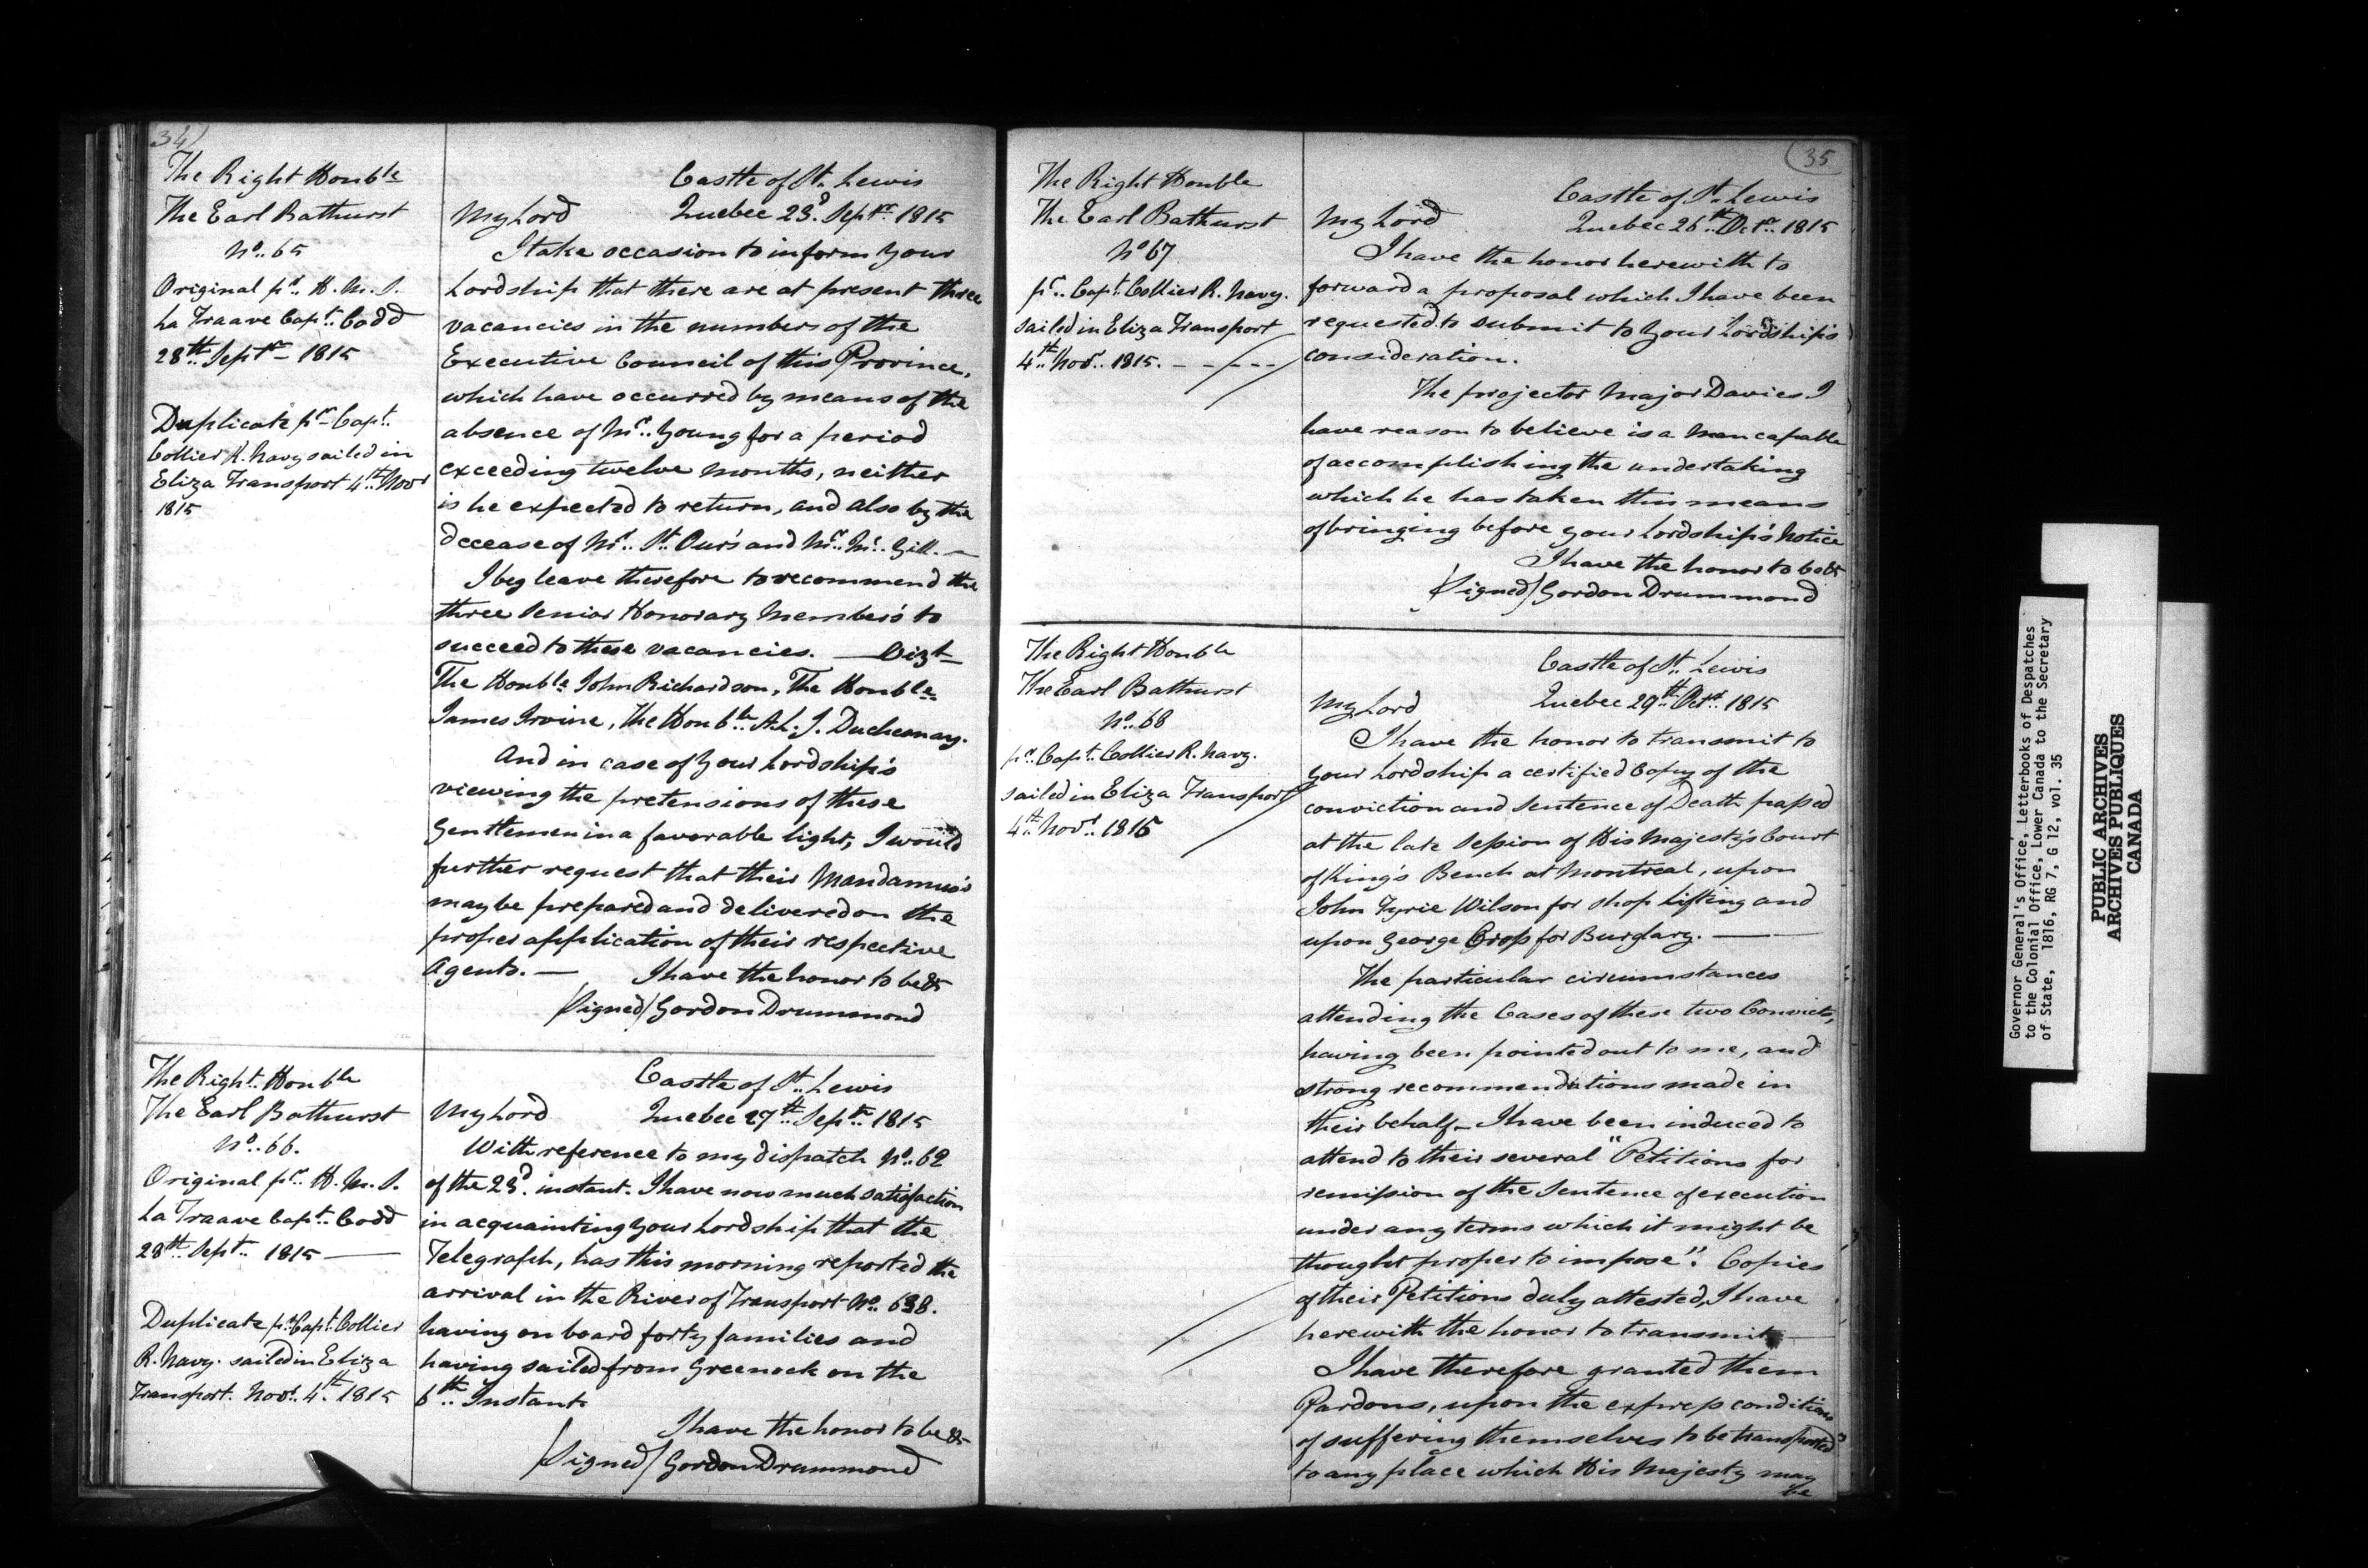 34
The Right Honble
The Earl Bathurst
No. 65
Original pr. H. M. S.
La Traave Capt. Codd
28th Septr 1815
Duplicate pr Capt.
Collier R. Navy sailed in
Eliza Transport 4th Novr
1815
Castle of St. Lewis
My Lord Quebec 23d Septr 1815
I take occasion to inform Your
Lordship that there are at present three
vacancies in the numbers of the
Executive Council of this Province,
which have occurred by means of the
absence of Mr. Young for a period
exceeding twelve months, neither
is he expected to return, and also by the
decease of Mr. St. Our's and Mr. Mc. Gill.—
I beg leave therefore to recommend the
three Senior Honorary Member's to
succeed to these vacancies. — Vizt—
The Honble John Richardson, The Honble
James Irvine, The Honble A. L. J. Duchesnay.
And in case of Your Lordship's
viewing the pretensions of these
Gentlemen in a favorable light, I would
further request that their Mandamus's
may be prepared and delivered on the
proper application of their respective
Agents. — I have the honor to be &c
/Signed/ Gordon Drummond
The Right Honble
The Earl Bathurst
No. 66.
Original pr. H. M. S.
La Traave Capt. Codd
28th Sept. 1815 —
Duplicate pr Capt. Collier
R. Navy. sailed in Eliza
Transport. Novr. 4th 1815
Castle of St. Lewis
My Lord Quebec 27th Septr 1815
With reference to my dispatch No. 62
of the 23d. instant. I have now much satisfaction
in acquainting Your Lordship that the
Telegraph, has this morning reported the
arrival in the River of Transport No. 638.
having on board forty families and
having sailed from Greenock on the
6th Instant
I have the honor to be &c
/Signed/ Gordon Drummond
35
The Right Honble
The Earl Bathurst
No 67
pr. Capt. Collier R. Navy.
sailed in Eliza Transport
4th Novr. 1815.
Castle of St. Lewis
My Lord Quebec 26th Octr. 1815
I have the honor herewith to
forward a proposal which I have been
requested to submit to Your Lordship's
consideration.
The projector Major Davies I
have reason to believe is a Man capable
of accomplishing the undertaking
which he has taken this means
of bringing before your Lordship's Notice
I have the honor to be &c
/Signed/ Gordon Drummond
The Right Honble
The Earl Bathurst
No. 68
pr. Capt. Collier R. Navy.
sailed in Eliza Transport
4th Novr. 1815
Castle of St. Lewis
My Lord Quebec 29th Octr. 1815
I have the honor to transmit to
your Lordship a certified Copy of the
conviction and Sentence of Death passed
at the late Session of His Majesty's Court
of King's Bench at Montreal, upon
John Tyrie Wilson for Shop Lifting and
upon George Cross for Burglary. —
The particular circumstances
attending the Cases of these two Convicts,
having been pointed out to me, and
strong recommendations made in
their behalf— I have been induced to
attend to their several "Petitions for
remission of the Sentence of execution
under any terms which it might be
thought proper to impose". Copies
of their Petitions duly attested, I have
herewith the honor to transmit —
I have therefore granted them
Pardons, upon the express condition
of suffering themselves to be transported
to any place which His Majesty may
be
Governor General's Office, Letterbooks of Despatches
to the Colonial Office, Lower Canada to the Secretary
of State, 1816, RG 7, G 12, vol. 35
PUBLIC ARCHIVES
ARCHIVES PUBLIQUES
CANADA